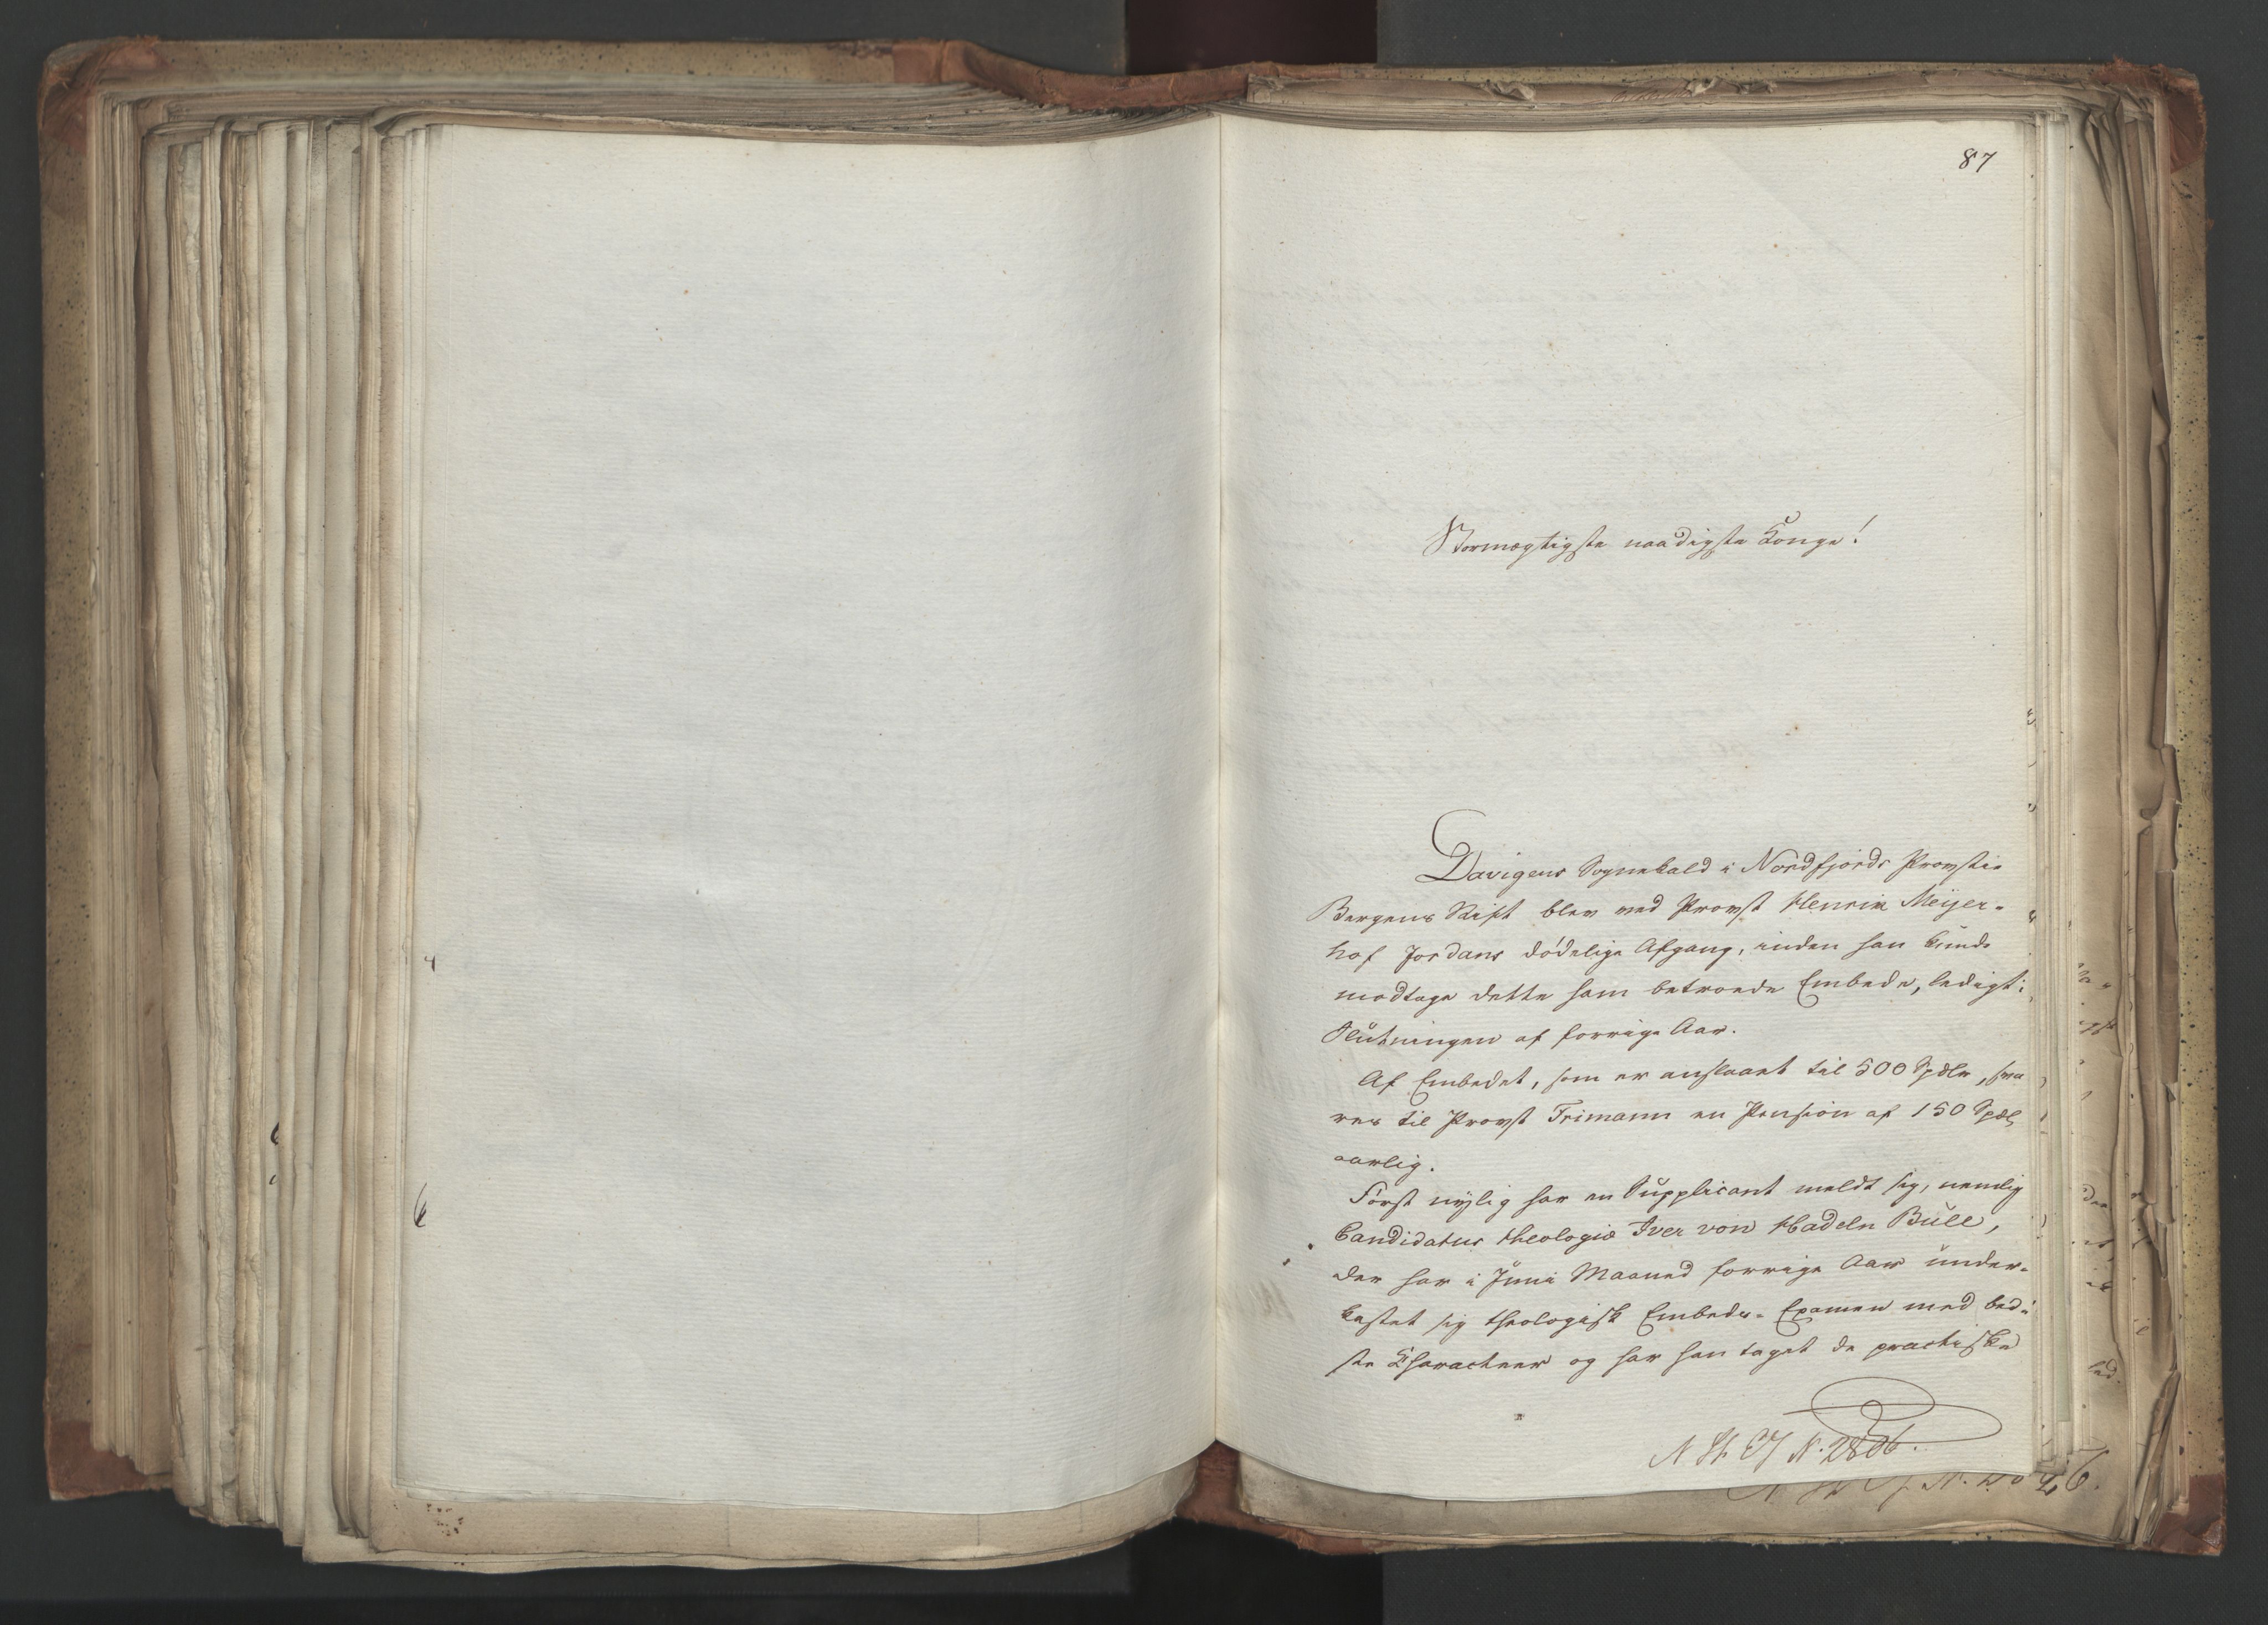 87
Stormægtigste naadigste Konge!
Davigens Sognekald i Nordfjords Provstie
Bergens Stift blev ved Provst Henrik Meijer-
hof Jordans dødelige Afgang, inden han kunde
modtage dette ham betroede Embede, ledigt i
Slutningen af forrige Aar.
Af Embedet, som er anslaaet til 500 Spdlr, sva
res til Provst Frimann en Pension af 150 Spdl
aarlig.
Først nylig har en Supplicant meldt sig, nemlig
Candidatus theologiæ Iver von Hadeln Bull,
der har i Juni Maaned forrige Aar under-
kastet sig theologisk Embeds-Examen med bed-
ste Charachteer og har han taget de practiske
N St CJ N. 2806.